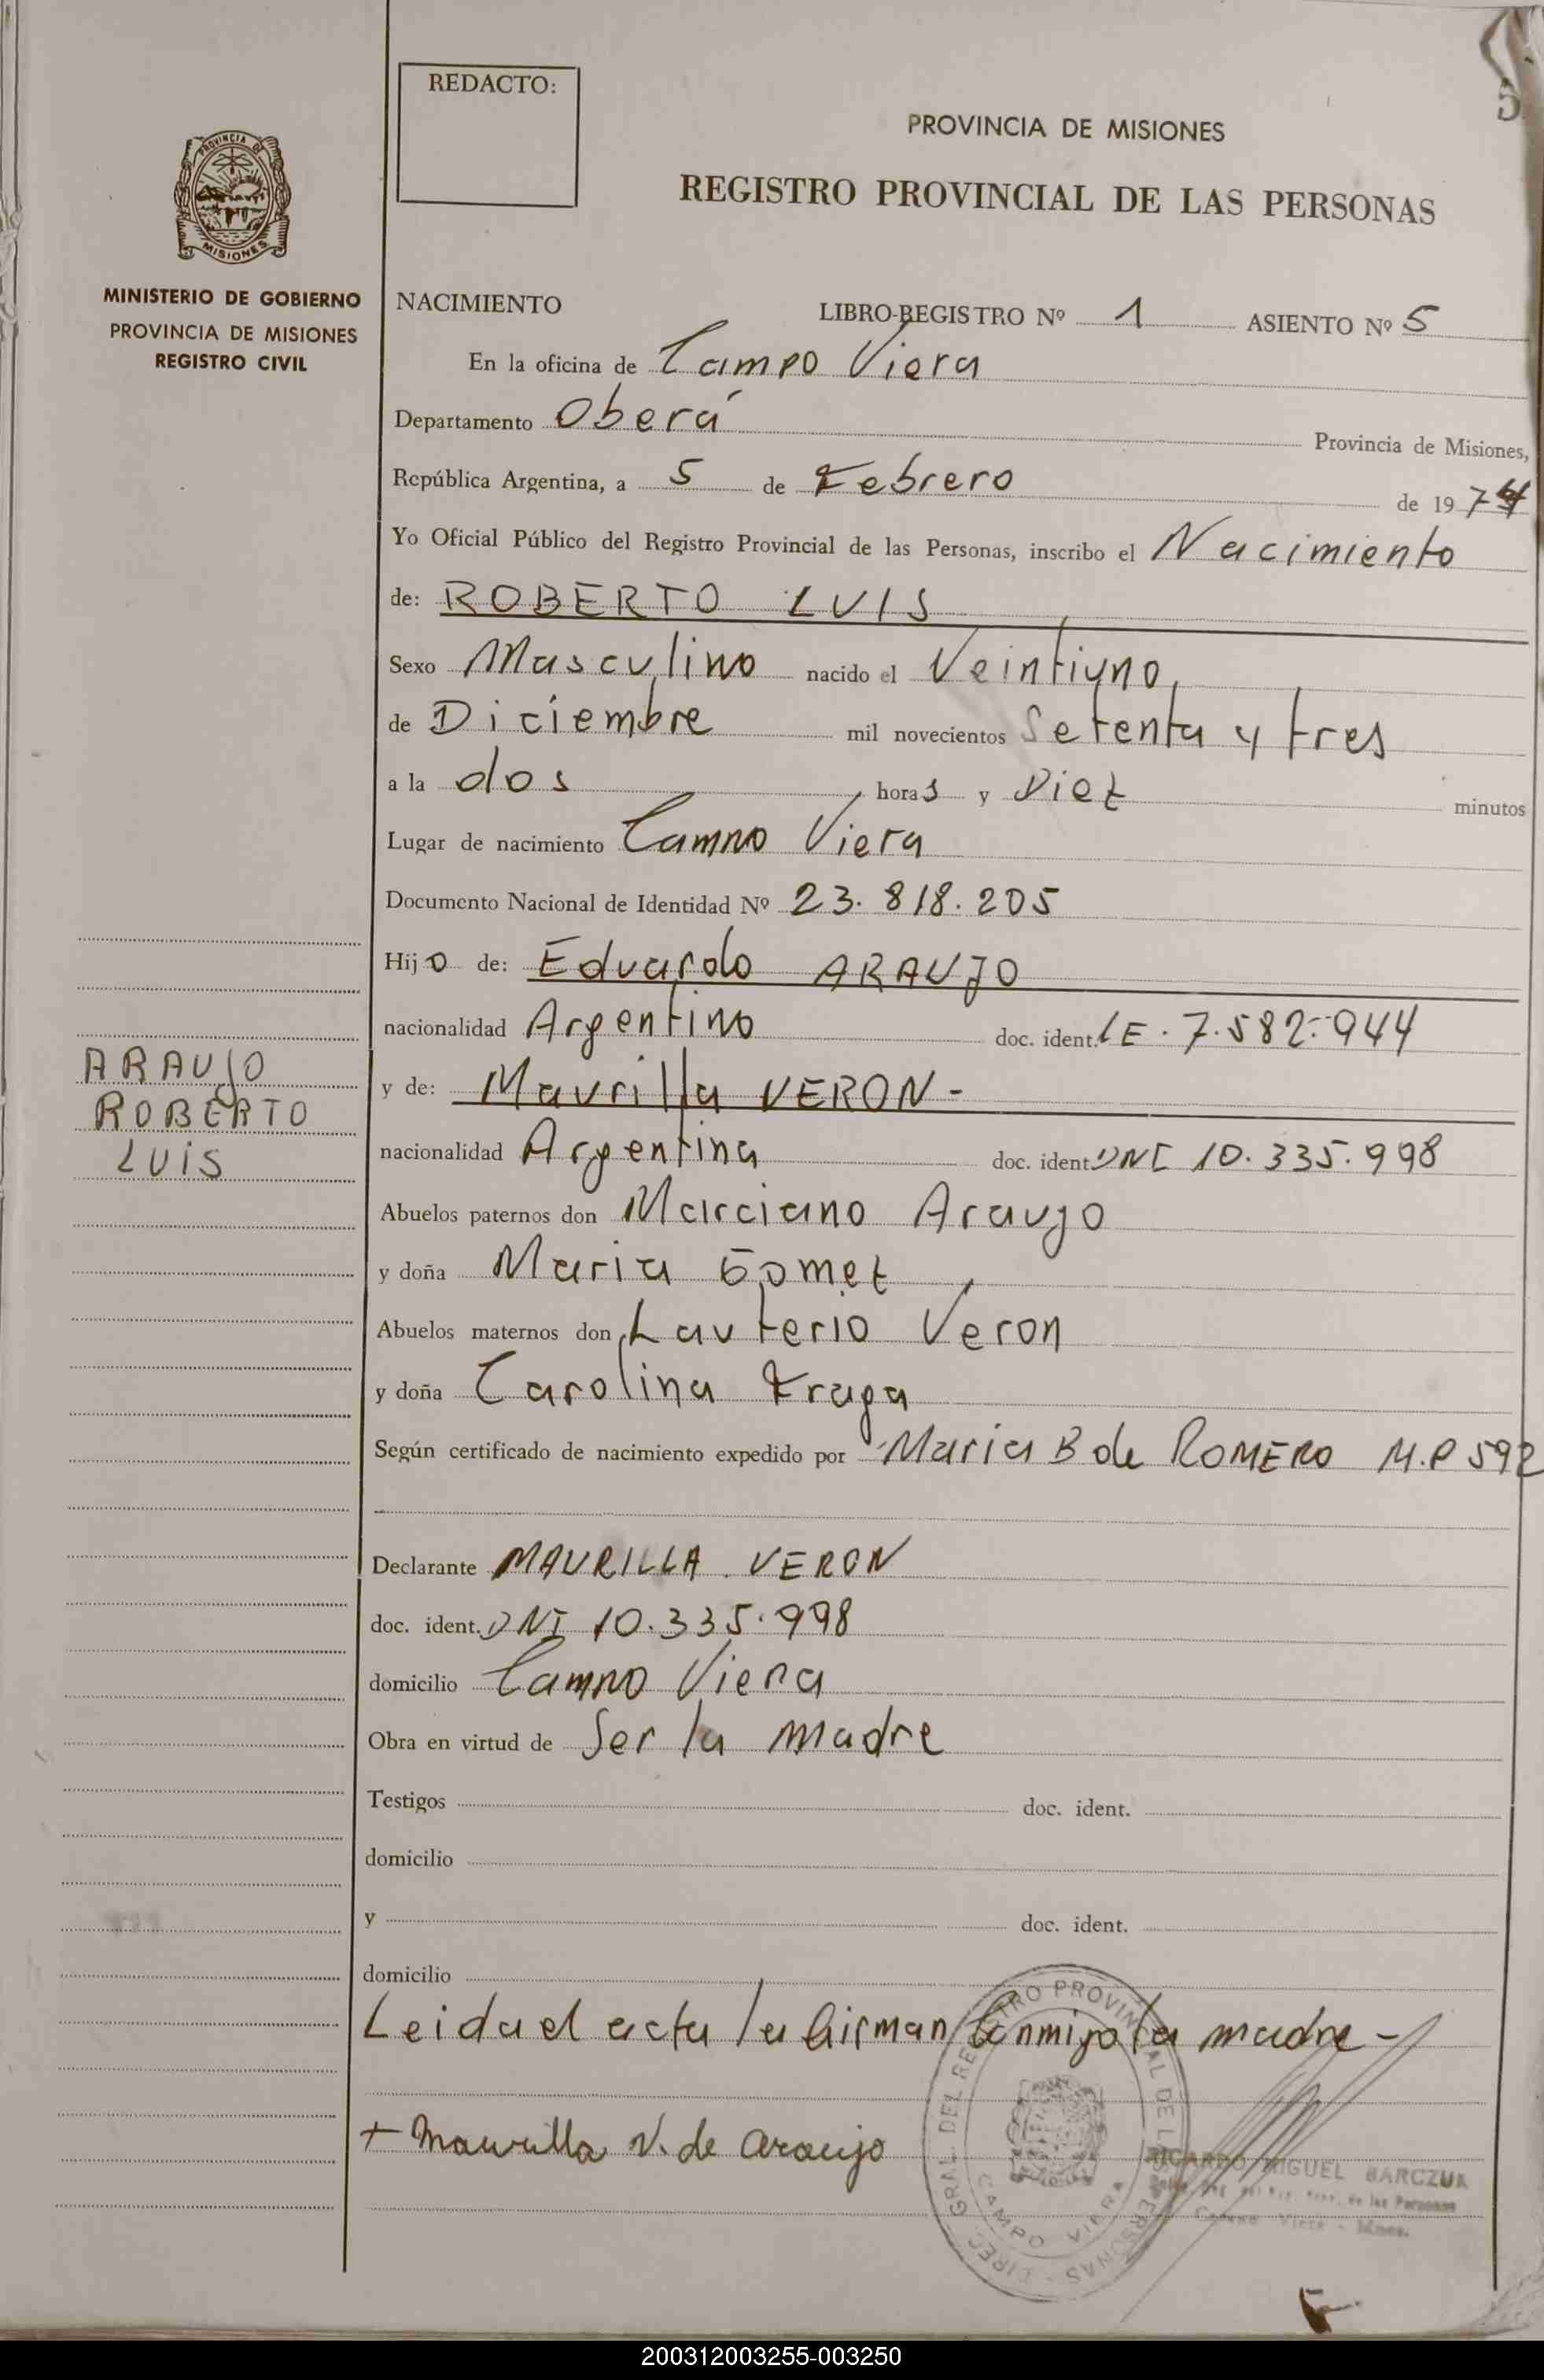 REDACTO:
5
PROVINCIA DE MISIONES
REGISTRO PROVINCIAL DE LAS PERSONAS
PROVINCIA DE
MISIONES
MINISTERIO DE GOBIERNO
PROVINCIA DE MISIONES
REGISTRO CIVIL
NACIMIENTO LIBRO-REGISTRO Nº 1 ASIENTO Nº 5
En la oficina de Campo Viera
Departamento Oberá Provincia de Misiones,
República Argentina, a 5 de Febrero de 1974
Yo Oficial Público del Registro Provincial de las Personas, inscribo el Nacimiento
de: ROBERTO LUIS
Sexo Masculino nacido el Veintiuno
de Diciembre mil novecientos Setenta y tres
a la dos horas y Diez minutos
Lugar de nacimiento Campo Viera
Documento Nacional de Identidad Nº 23.818.205
Hijo de: Eduardo ARAUJO
nacionalidad Argentino doc. ident. LE. 7.582.944
y de: Maurilla VERON-
nacionalidad Argentina doc. ident. DNI 10.335.998
Abuelos paternos don Marciano Araujo
y doña Maria Gomez
Abuelos maternos don Lauterio Veron
y doña Carolina Fraga
Según certificado de nacimiento expedido por Maria B de ROMERO M.P 592
Declarante MAURILLA VERON
doc. ident. DNI 10.335.998
domicilio Campo Viera
Obra en virtud de Ser la madre
Testigos doc. ident.
domicilio
y doc. ident.
domicilio
Leida el acta la firman Conmigo la madre -
+ Maurilla V. de Araujo
ARAUJO
ROBERTO
LUIS
DIREC. GRAL. DEL REGISTRO PROVINCIAL DE LAS PERSONAS
CAMPO VIERA
RICARDO MIGUEL BARCZUK
de las Personas
Campo Viera - Mnes.
200312003255-003250